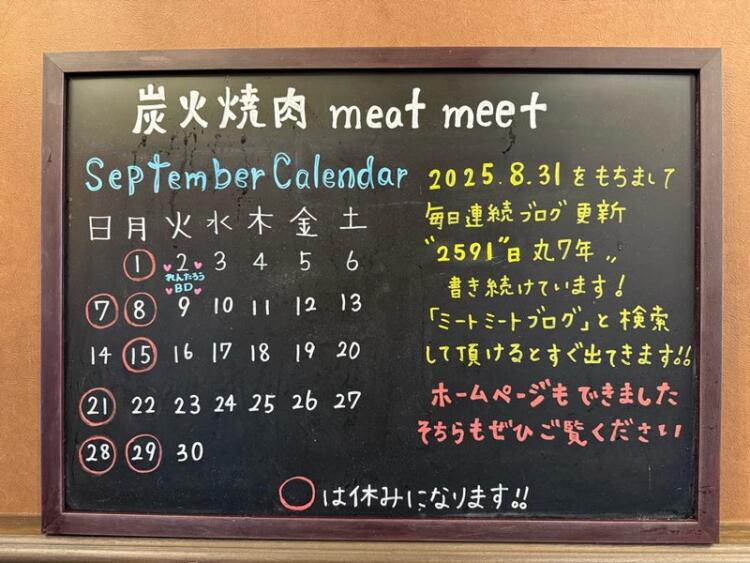 炭火焼肉 meat meet
September Calendar
日 月 火 水 木 金 土
1 2 3 4 5 6
れんたろう
BD
7 8 9 10 11 12 13
14 15 16 17 18 19 20
21 22 23 24 25 26 27
28 29 30
2025.8.31をもちまして
毎日連続ブログ更新
"2591"日 丸7年〃
書き続けています!
「ミートミートブログ」と検索
して頂けるとすぐ出てきます!!
ホームページもできました
そちらもぜひご覧ください
◯は休みになります!!